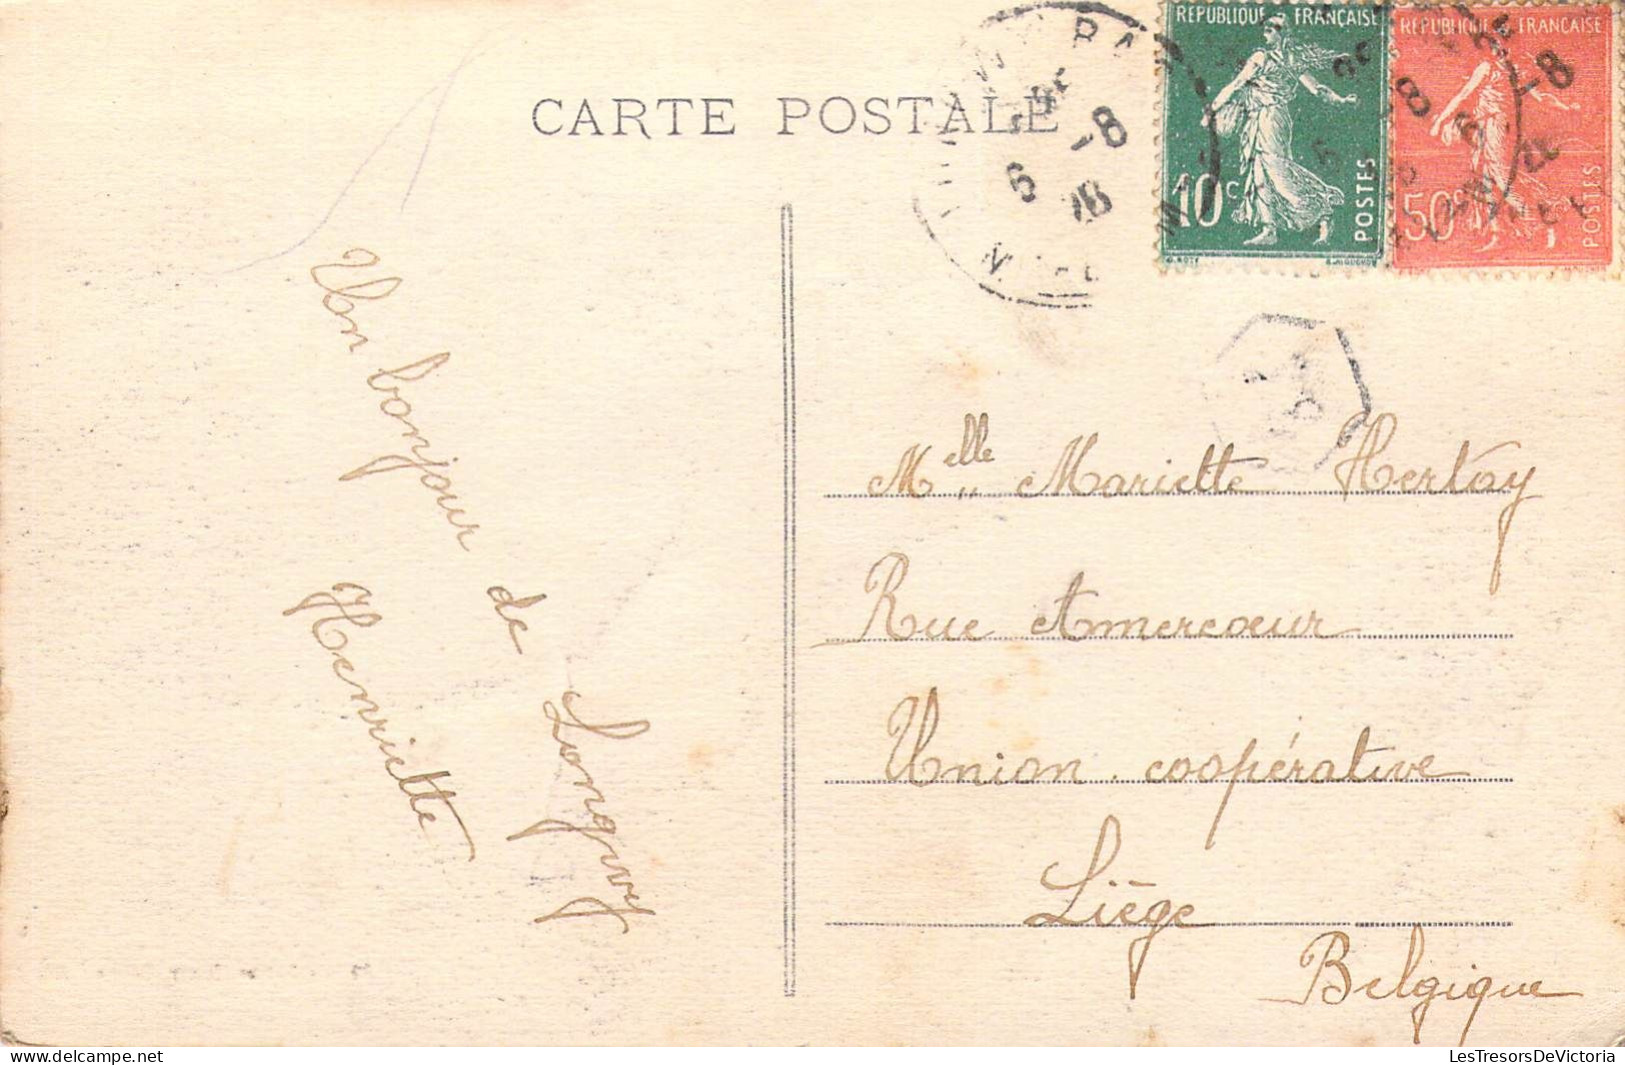 CARTE POSTALE
RÉPUBLIQUE FRANÇAISE
10c
POSTES
RÉPUBLIQUE FRANÇAISE
50c
POSTES
6 -8
Un bonjour de Longwy
Henriette
Melle Mariette Hertay
Rue Amercœur
Union coopérative
Liège
Belgique
LesTresorsDeVictoria